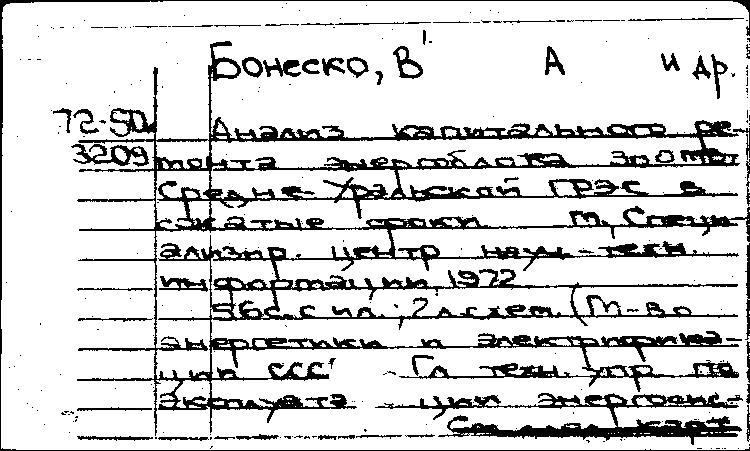 Бонеско, В. А и др.
72-50
3209
Анализ капитального ре-
монта энергоблока 300 мвт
Средне-Уральской ГРЭС в
сжатые сроки. М., Специ-
ализир. центр науч.-техн.
информации, 1972
56с. с ил.; 2 л. схем. (М-во
энергетики и электрифика-
ции СССР Гл техн. упр. по
эксплуата ции энергосис-
См. след. карт